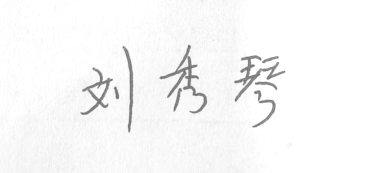 刘秀琴